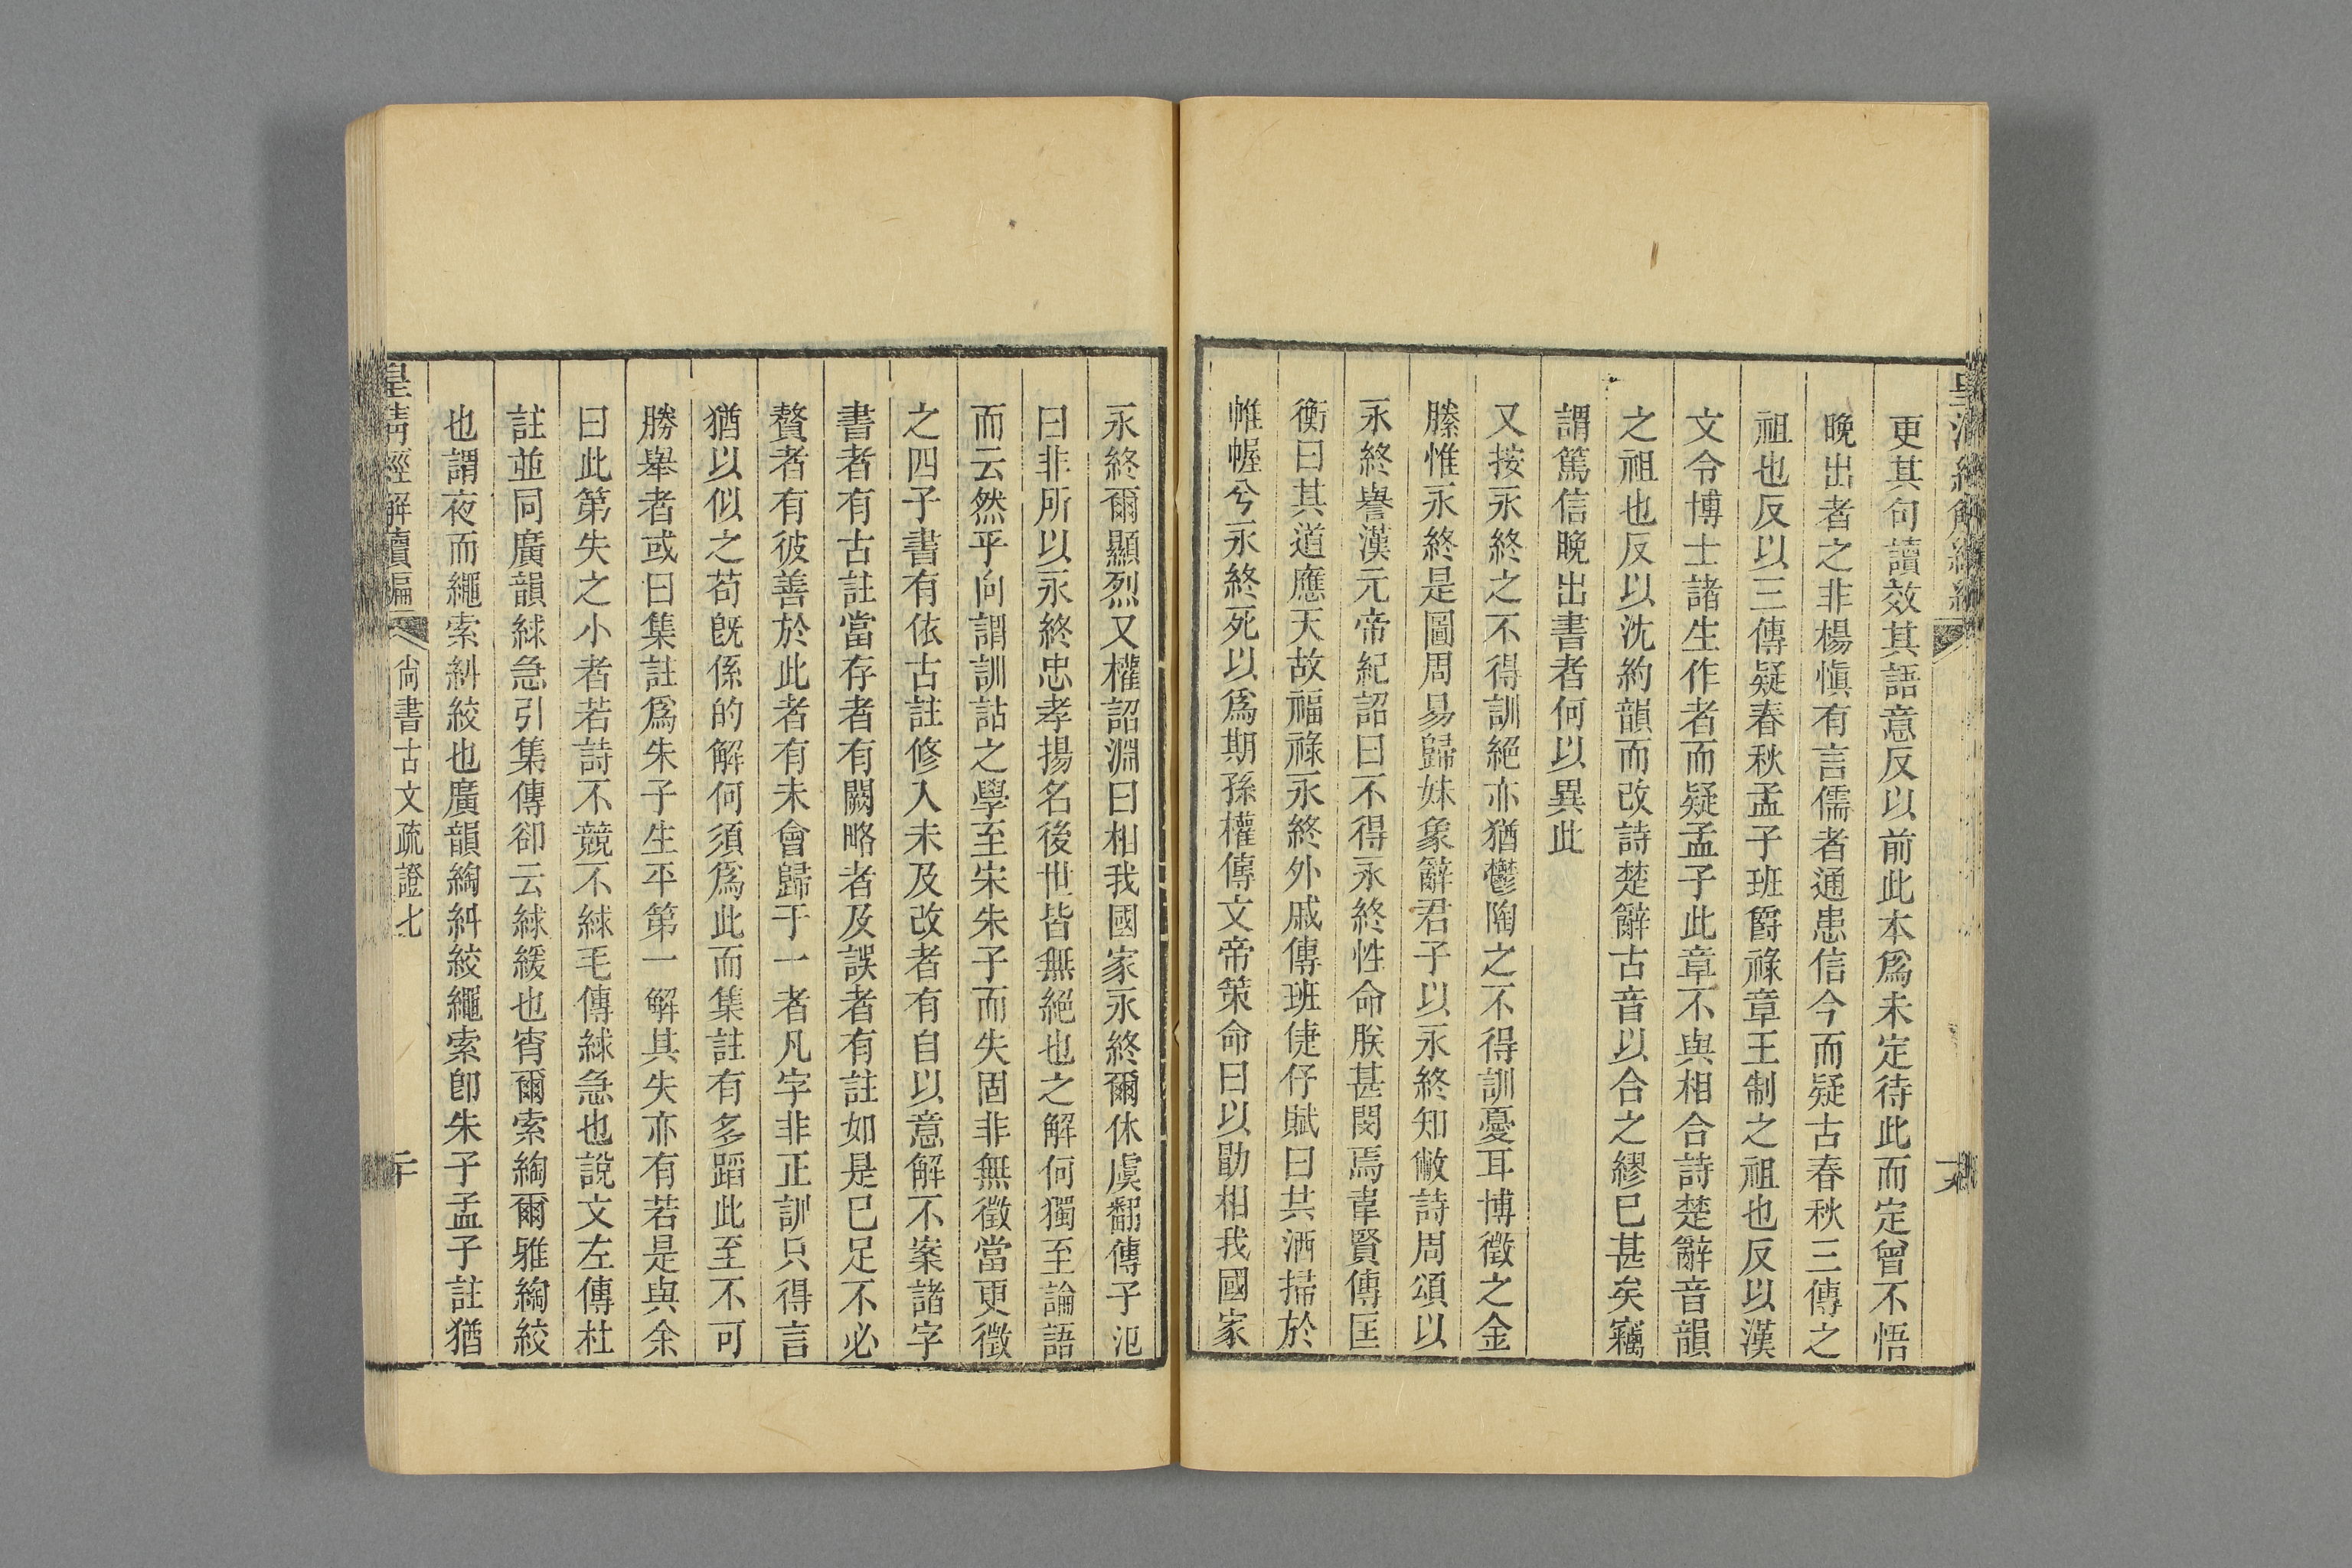 更其句讀效其語意反以前此本爲未定待此而定曾不悟
晚出者之非楊愼有言儒者通患信今而疑古春秋三傳之
祖也反以三傳疑春秋孟子班爵祿章王制之祖也反以漢
文令博士諸生作者而疑孟子此章不與相合詩楚辭音韻
之祖也反以沈約韻而改詩楚辭古音以合之繆巳甚矣竊
謂篤信晚出書者何以異此
又按永終之不得訓絕亦猶鬱陶之不得訓憂耳博徵之金
縢惟永終是圖周易歸妹象辭君子以永終知敝詩周頌以
永終譽漢元帝紀詔曰不得永終性命朕甚閔焉韋賢傳匡
衡曰其道應天故福祿永終外戚傳班倢伃賦曰共洒掃於
帷幄兮永終死以爲期孫權傳文帝策命曰以勖相我國家
永終爾顯烈又權詔淵曰相我國家永終爾休虞翻傳子汜
曰非所以永終忠孝揚名後世皆無絕也之解何獨至論語
而云然乎向謂訓詁之學至宋朱子而失固非無徵當更徵
之四子書有依古註修入未及改者有自以意解不案諸字
書者有古註當存者有闕略者及誤者有註如是巳足不必
贅者有彼善於此者有未會歸于一者凡字非正訓只得言
猶以似之苟旣係的解何須爲此而集註有多蹈此至不可
勝舉者或曰集註爲朱子生平第一解其失亦有若是與余
曰此第失之小者若詩不競不絿毛傳絿急也說文左傳杜
註並同廣韻絿急引集傳卻云絿緩也宵爾索綯爾雅綯絞
也謂夜而繩索糾絞也廣韻綯糾絞繩索卽朱子孟子註猶
皇淸經解續編
尙書古文疏證七
二十